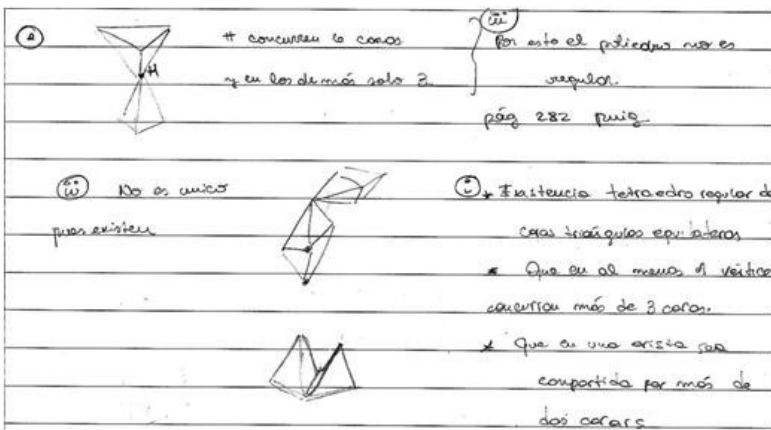 a
H
H concurren 6 caras
y en los demás solo 3
iii
Por esto el poliedro no es
regular.
pág 282 puig
iv No es unico
pues existen
i * Existencia tetraedro regular de
caras triángulos equilateros
* Que en al menos 1 vértice
concurran más de 3 caras.
* Que en una arista sea
compartida por más de
dos caras